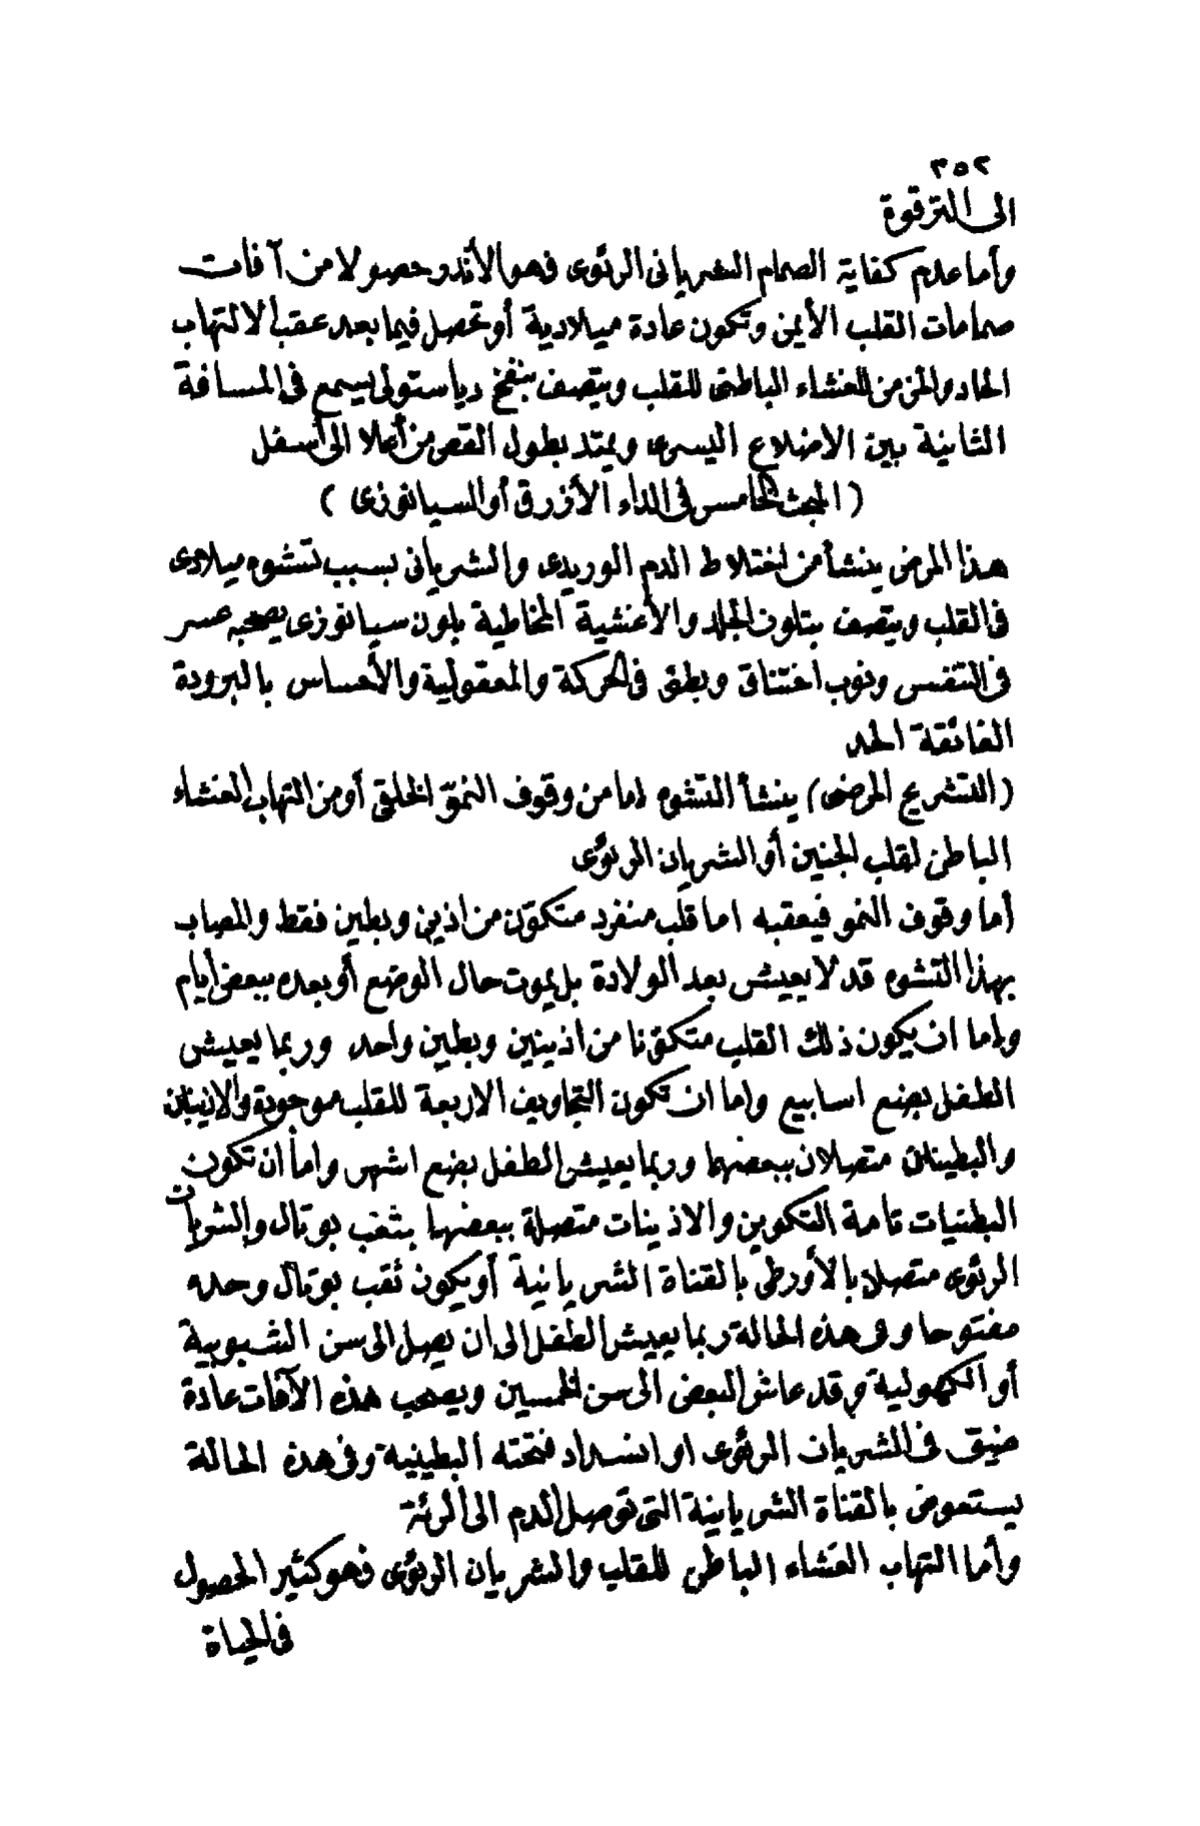 ٣٥٢
الى الترقوة
وأما عدم كفاية الصمام الشريانى الرئوى فهو الأندر حصولا من آفات
صمامات القلب الأيمن وتكون عادة ميلادية أو تحصل فيما بعد عقب الالتهاب
الحاد والمزمن للغشاء الباطنى للقلب ويتصف بنفخ دياستولى يسمع فى المسافة
الثانية بين الاضلاع اليسرى ويمتد بطول القص من أعلا الى أسفل
( المبحث الخامس فى الداء الأزرق أو السيانوزى )
هذا المرض ينشأ من اختلاط الدم الوريدى والشريانى بسبب تشوه ميلادى
فى القلب ويتصف بتلون الجلد والأغشية المخاطية بلون سيانوزى يصحبه عسر
فى التنفس ونوب اختناق وبطئ فى الحركة والمعقولية والأحساس بالبرودة
الفائقة الحد
(التشريح المرضى) ينشأ التشوه اما من وقوف النموّ الخلقى أو من التهاب الغشاء
الباطن لقلب الجنين أو الشريان الرئوى
أما وقوف النمو فيعقبه اما قلب منفرد متكوّن من اذين وبطين فقط والمصاب
بهذا التشوه قد لا يعيش بعد الولادة بل يموت حال الوضع أو بعده ببعض أيام
واما ان يكون ذلك القلب متكوّنا من اذينين وبطين واحد وربما يعيش
الطفل بضع اسابيع واما ان تكون التجاويف الاربعة للقلب موجودة والاذينان
والبطينان متصلان ببعضهما وربما يعيش الطفل بضع اشهر واما أن تكون
البطنيات تامة التكوين والاذينات متصلة ببعضها بثغب بوتال والشريان
الرئوى متصلا بالأورطى بالقناة الشريانية أو يكون ثقب بوتال وحده
مفتوحا وفى هذه الحالة ربما يعيش الطفل الى ان يصل الى سن الشبوبية
أو الكهولية وقد عاش البعض الى سن الخمسين ويصحب هذه الآفات عادة
ضيق فى الشريان الرئوى او انسداد فتحته البطينية وفى هذه الحالة
يستعوض بالقناة الشريانية التى توصل الدم الى الرئة
وأما التهاب الغشاء الباطن للقلب والشريان الرئوى فهو كثير الحصول
فى الحياة